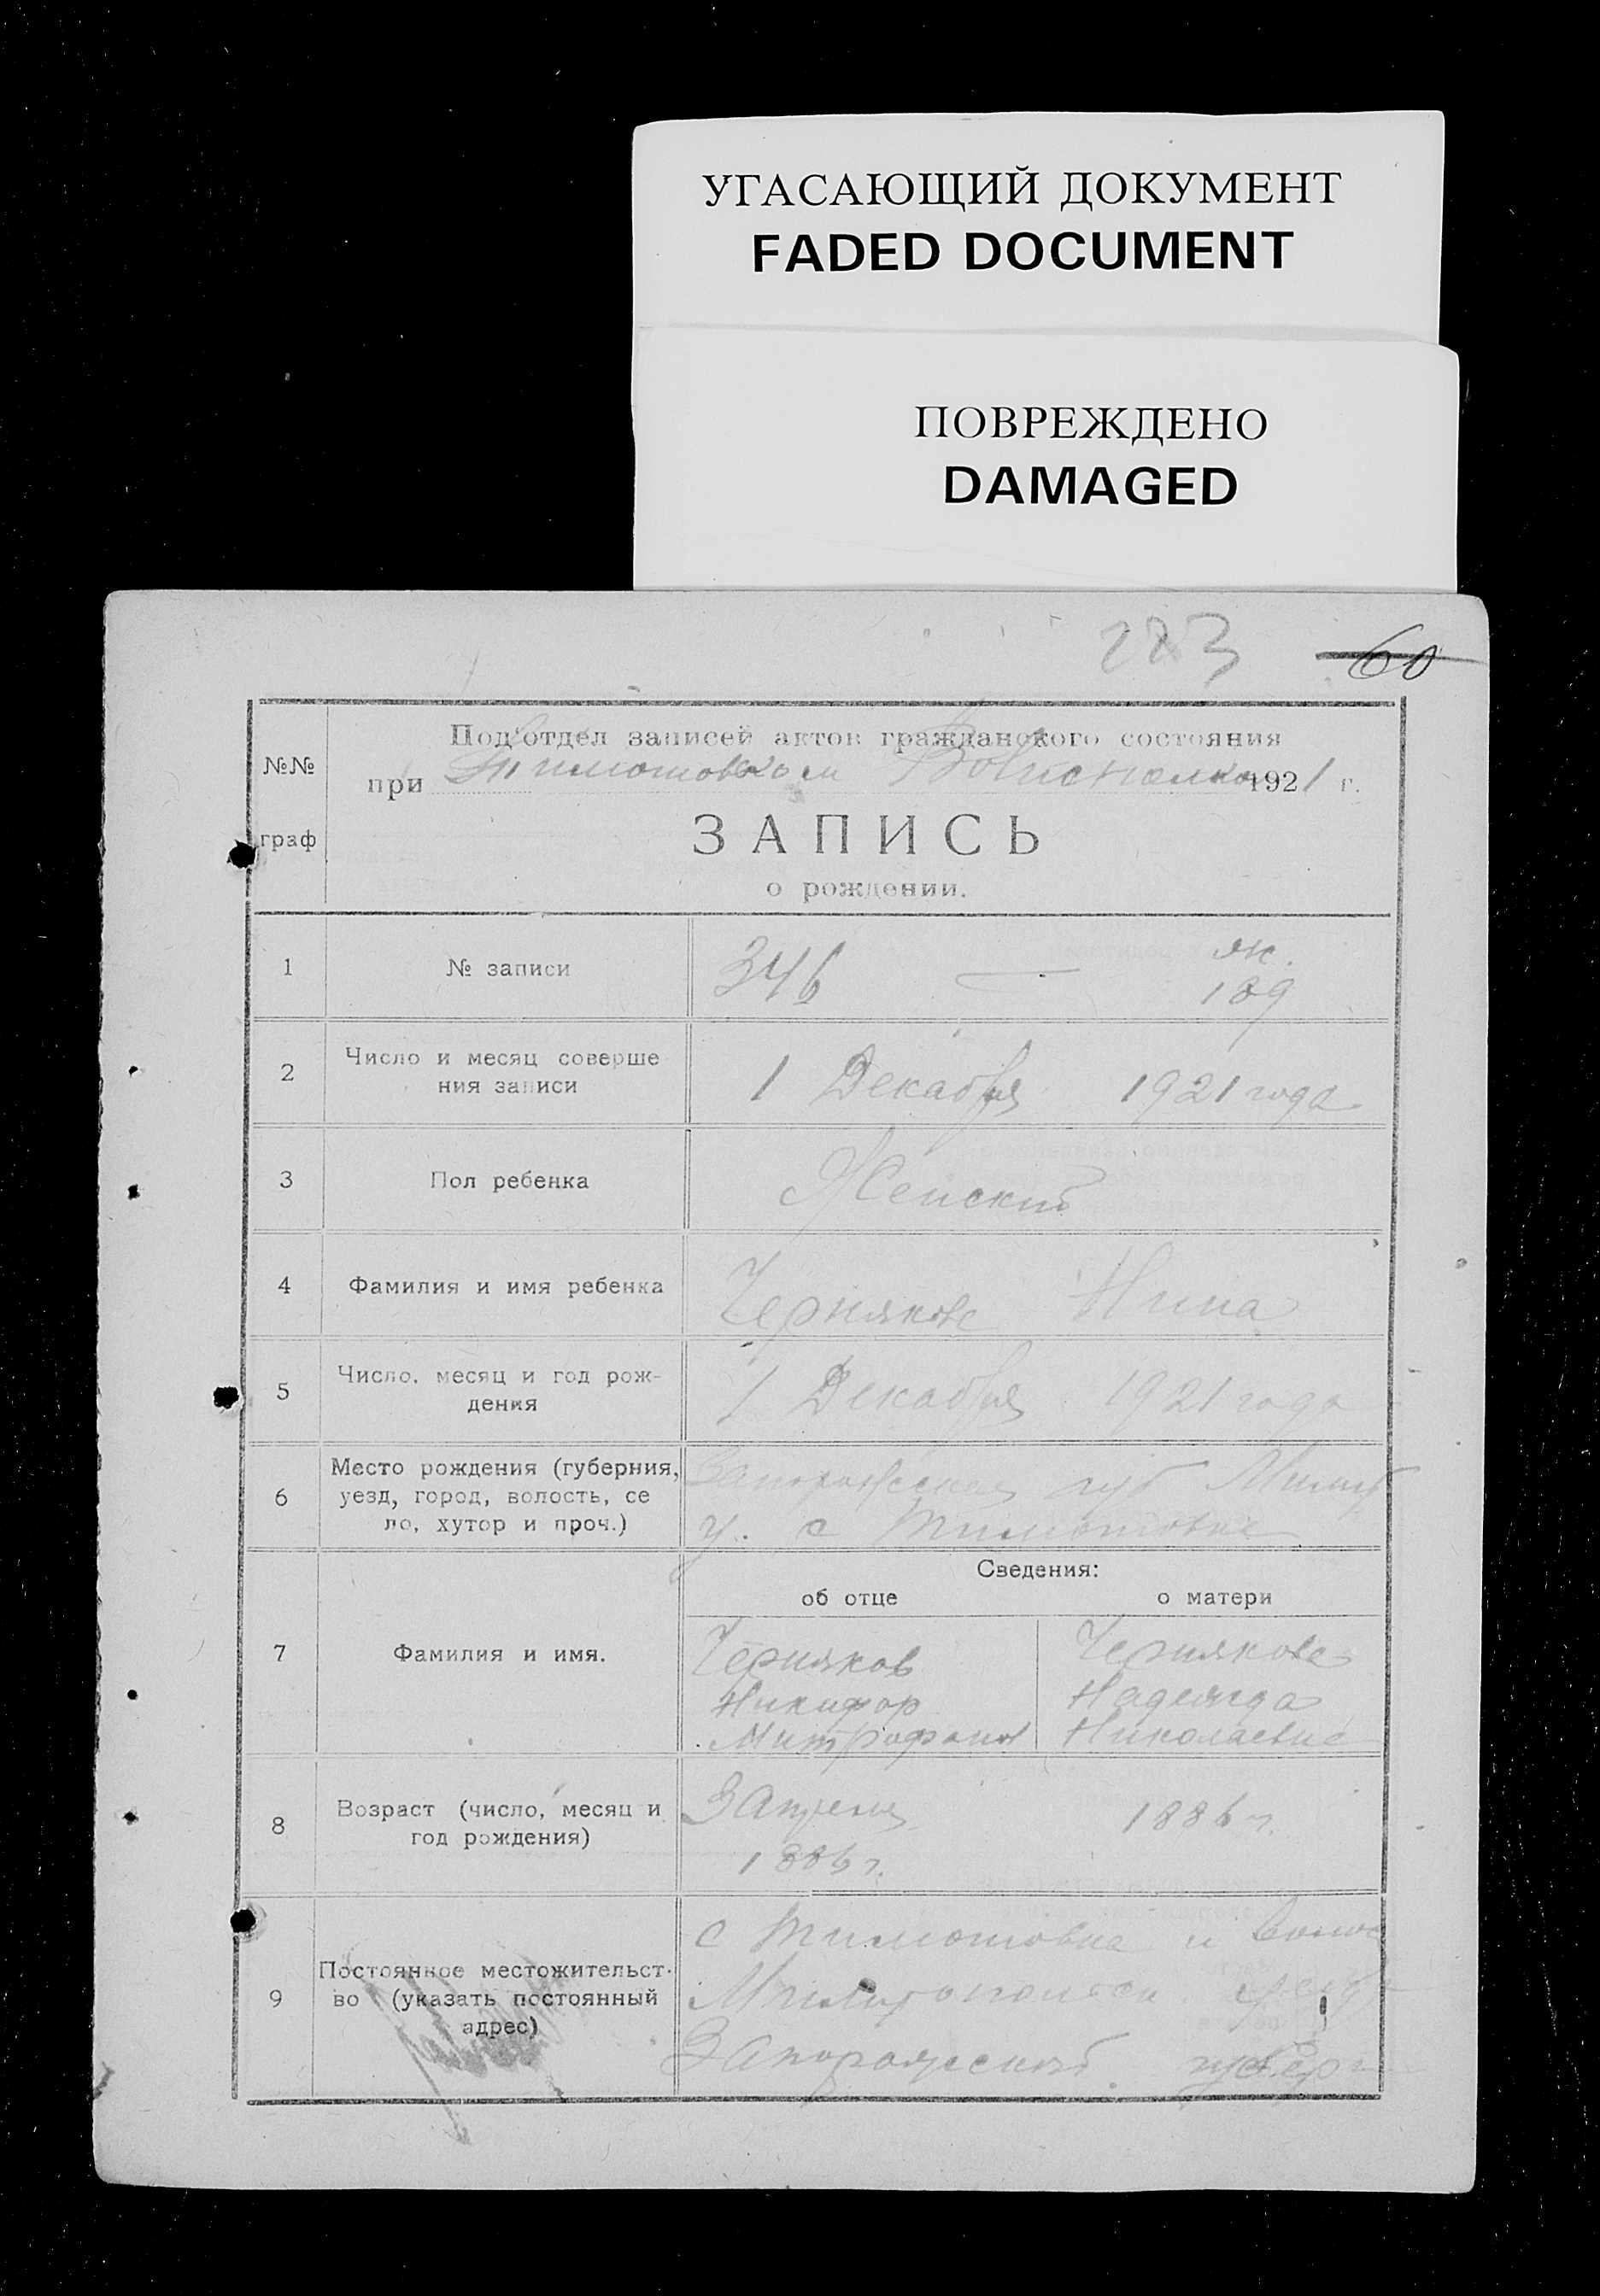 УГАСАЮЩИЙ ДОКУМЕНТ
FADED DOCUMENT
ПОВРЕЖДЕНО
DAMAGED
283 60
№№ граф
Под'отдел записей актов гражданского состояния
при Тимошовском Волисполкоме 1921 г.
ЗАПИСЬ
о рождении.
1 № записи 346 — жк. 189
2 Число и месяц соверше
ния записи 1 Декабря 1921 года
3 Пол ребенка Женский
4 Фамилия и имя ребенка Чернякова Нина
5 Число, месяц и год рож-
дения 1 Декабря 1921 года
6 Место рождения (губерния,
уезд, город, волость, се
ло, хутор и проч.)
Запорожская губ Мелит
у. с Тимошовка
Сведения:
об отце о матери
7 Фамилия и имя.
Черняков
Никифор
Митрофанов
Чернякова
Надежда
Николаевна
8 Возраст (число, месяц и
год рождения)
3 Апреля
1886 г.
1886 г.
9 Постоянное местожительст-
во (указать постоянный
адрес)
с Тимошовка и волос
Мелитопольск уезд
Запорожской губерн